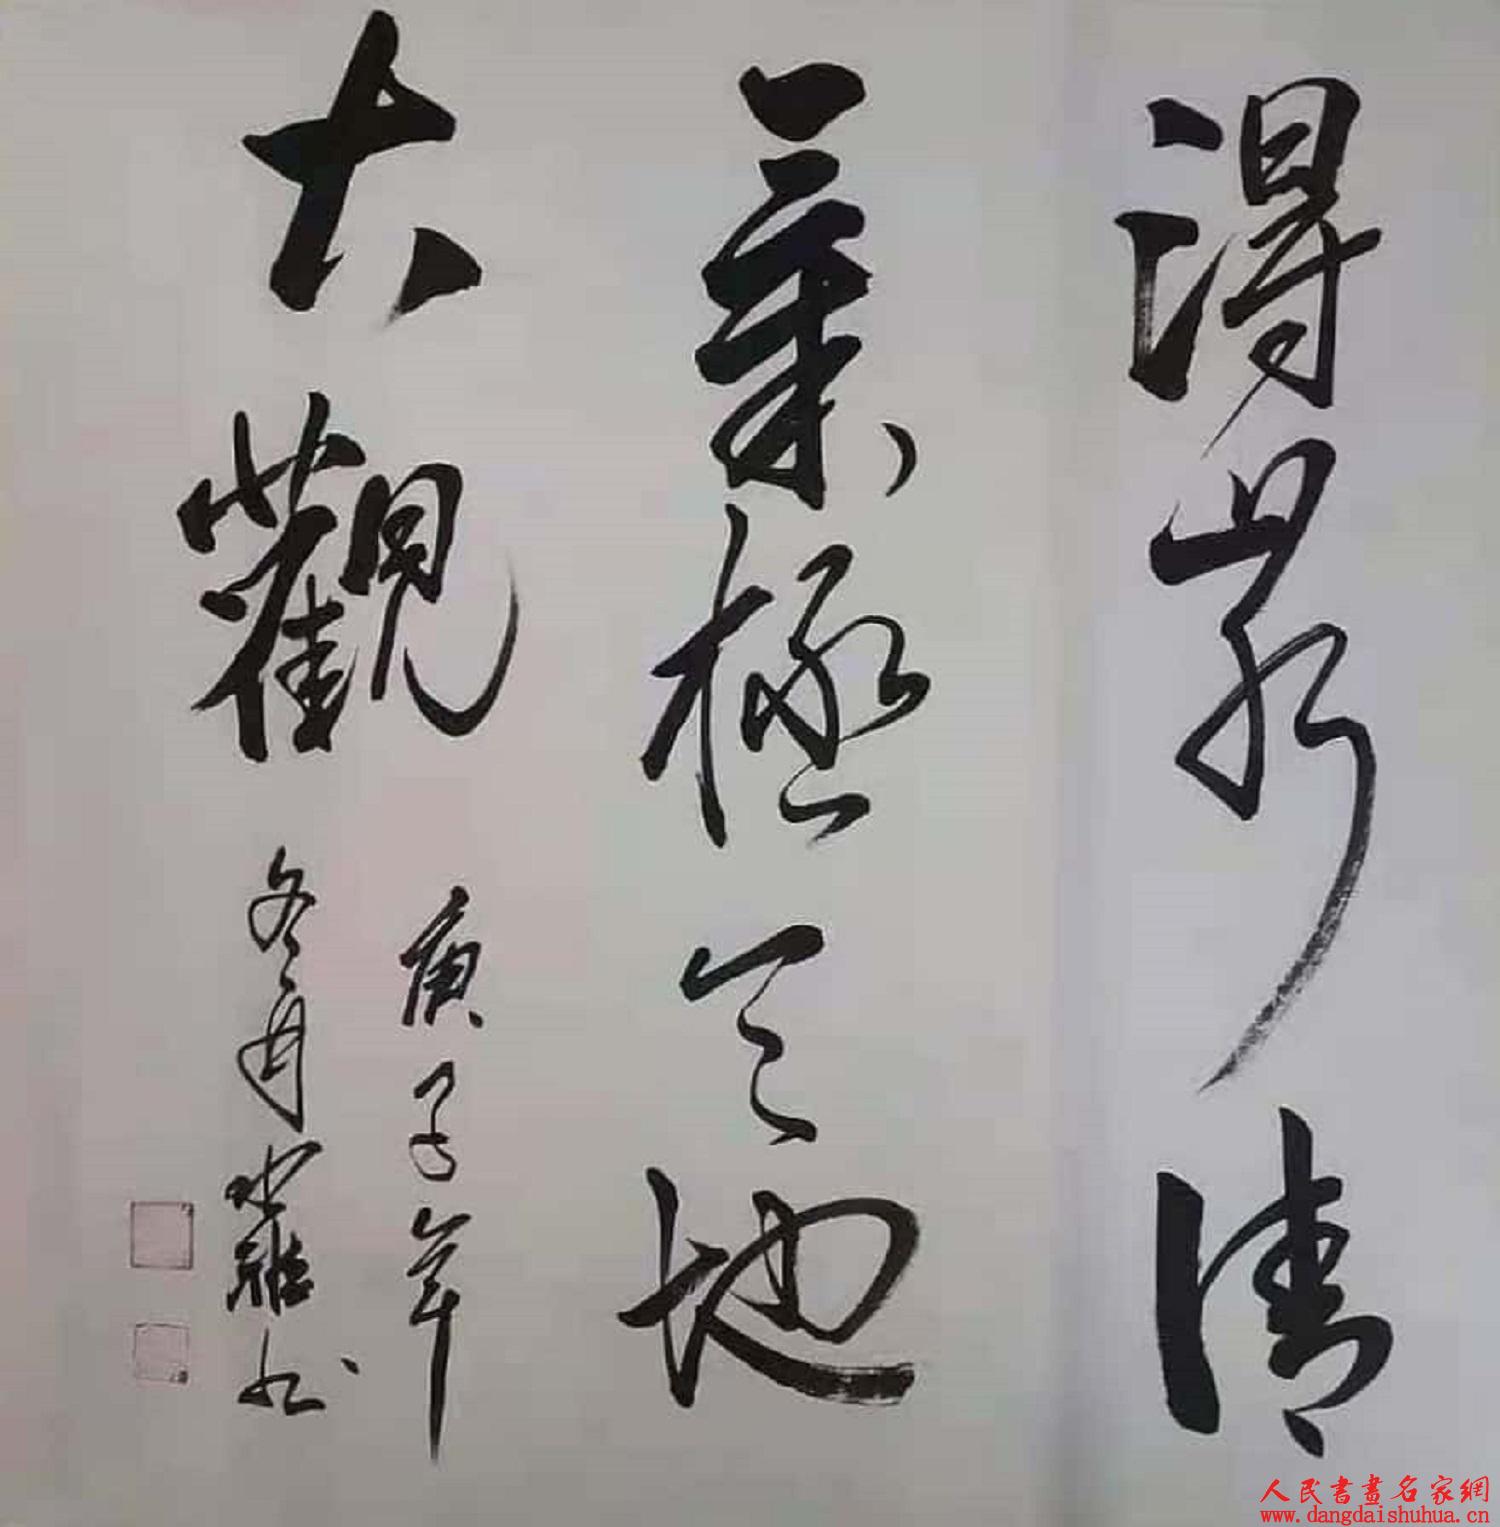 得山水清
氣極天地
大觀
庚子年
冬月书
人民書畫名家網
www.dangdaishuhua.cn